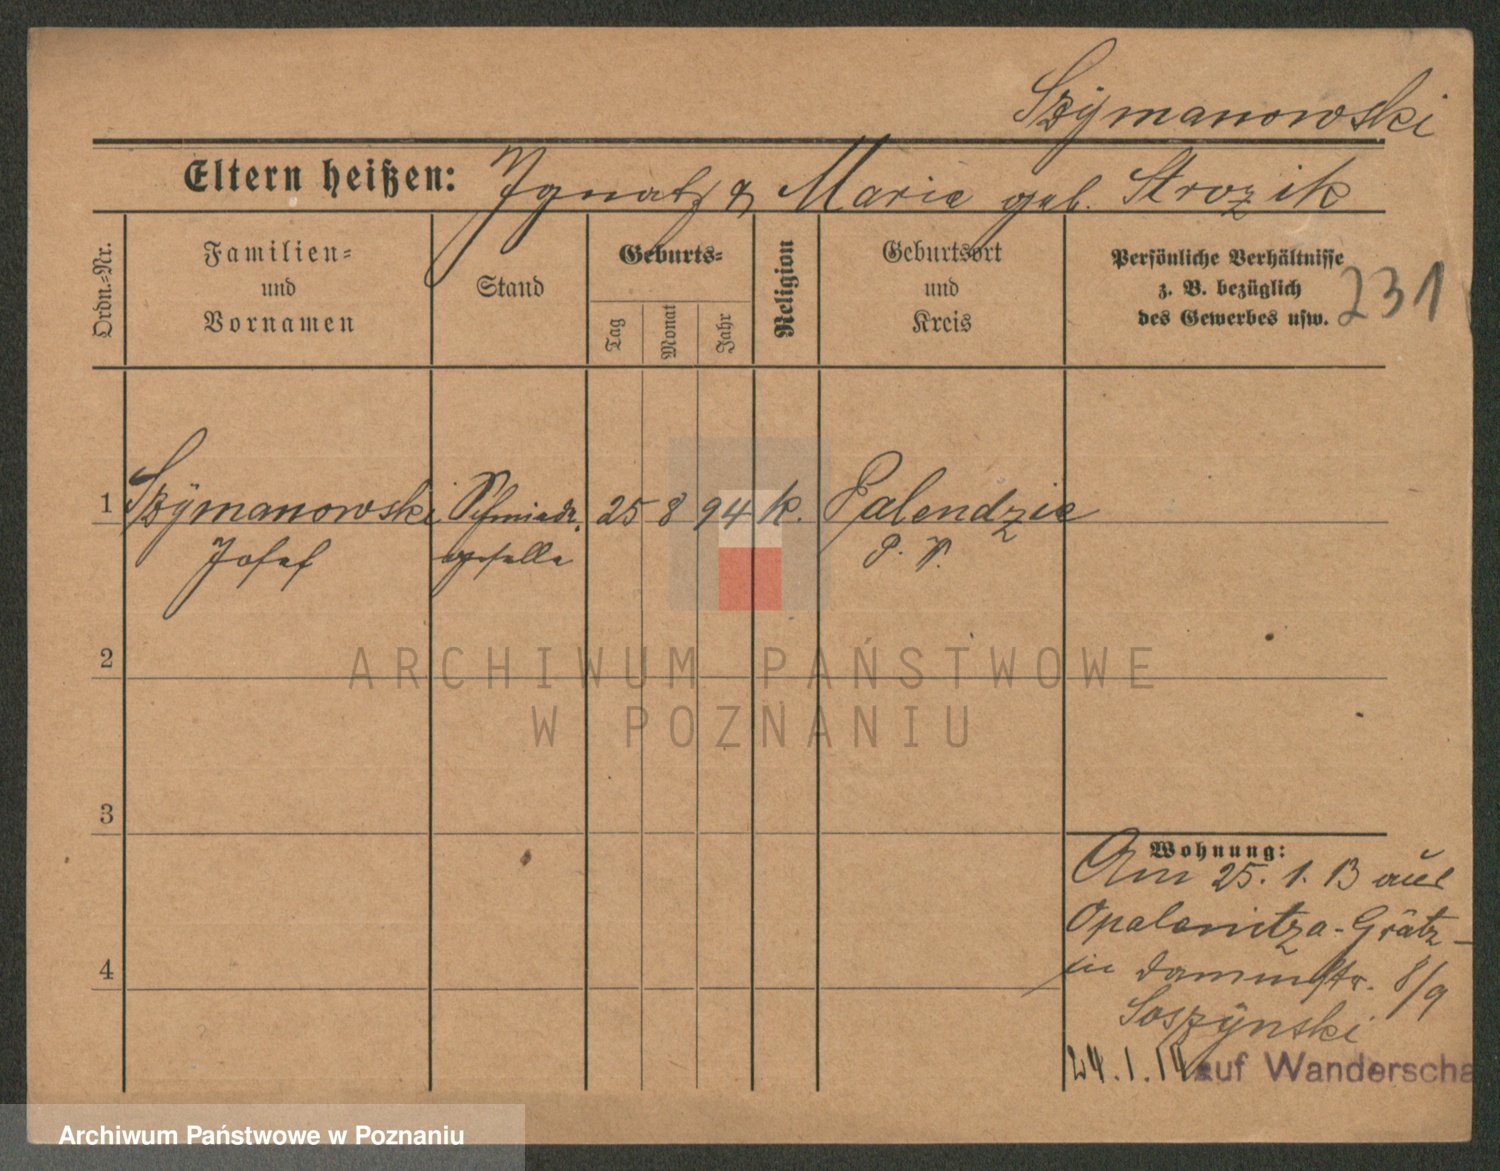 Szÿmanowski
Eltern heißen: Ignatz & Marie geb. Strozik
Ordn.=Nr.
Familien=
und
Vornamen
Stand
Geburts=
Tag
Monat
Jahr
Religion
Geburtsort
und
Kreis
Persönliche Verhältnisse
z. B. bezüglich
des Gewerbes usw.
231
1 Szÿmanowski Schmiede 25 8 94 k. Palendzie
Josef geselle P. W.
2
3
4
Wohnung:
Am 25. 1. 13 aus
Opalenitza-Grätz-
in Dammstr. 8/9
Soszÿnski
24.1.14 auf Wanderscha
ARCHIWUM PAŃSTWOWE
W POZNANIU
Archiwum Państwowe w Poznaniu